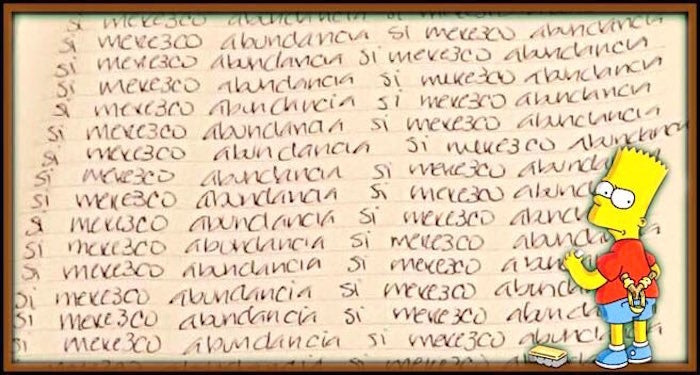 si merezco abundancia si merezco abundancia
si merezco abundancia si merezco abundancia
si merezco abundancia si merezco abundancia
si merezco abundancia si merezco abundancia
si merezco abundancia si merezco abundancia
si merezco abundancia si merezco abundancia
si merezco abundancia si merezco abund
si merezco abundancia si merezco abund
si merezco abundancia si merezco abund
si merezco abundancia si merezco abund
si merezco abundancia si merezco abun
si merezco abundancia si merezco abund
si merezco abundancia si merezco abunda
si merezco abundancia si merezco abund